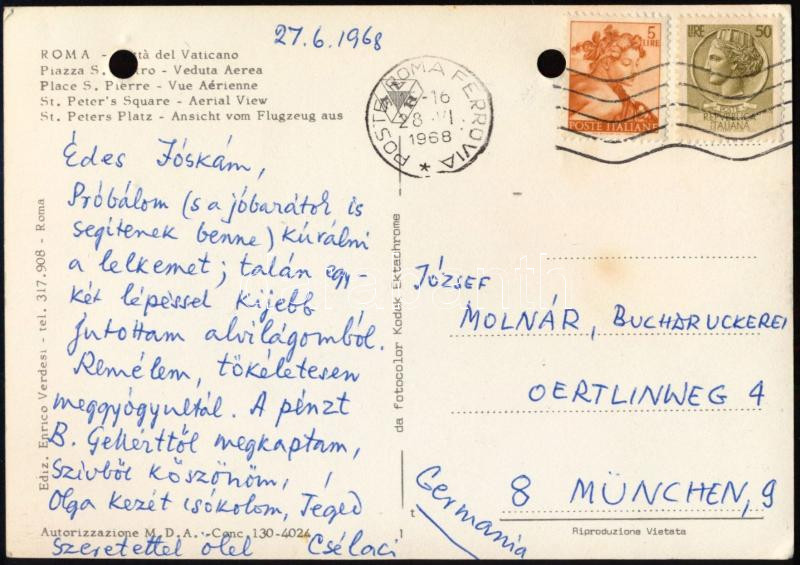 27.6.1968
ROMA - Città del Vaticano
Piazza S. Pietro - Veduta Aerea
Place S. Pierre - Vue Aérienne
St. Peter's Square - Aerial View
St. Peters Platz - Ansicht vom Flugzeug aus
POSTE ROMA FERROVIA
-16
28.VI.
1968
5
LIRE
POSTE ITALIANE
LIRE 50
REPVBBLICA
ITALIANA
Édes Jóskám,
Próbálom (s a jóbarátok is
segítenek benne) kúrálni
a lelkemet; talán egy-
két lépéssel kijebb
jutottam alvilágomból.
Remélem, tökéletesen
meggyógyultál. A pénzt
B. Gellérttől megkaptam,
szívből köszönöm,
Olga kezét csókolom, Téged
szeretettel ölel Csélaci
Ediz. Enrico Verdesi - tel. 317.908 - Roma
Autorizzazione M.D.A. - Conc. 130-4024
da fotocolor Kodak Ektachrome
JÓZSEF
MOLNÁR, BUCHDRUCKEREI
OERTLINWEG 4
8 MÜNCHEN, 9
Germania
Riproduzione Vietata